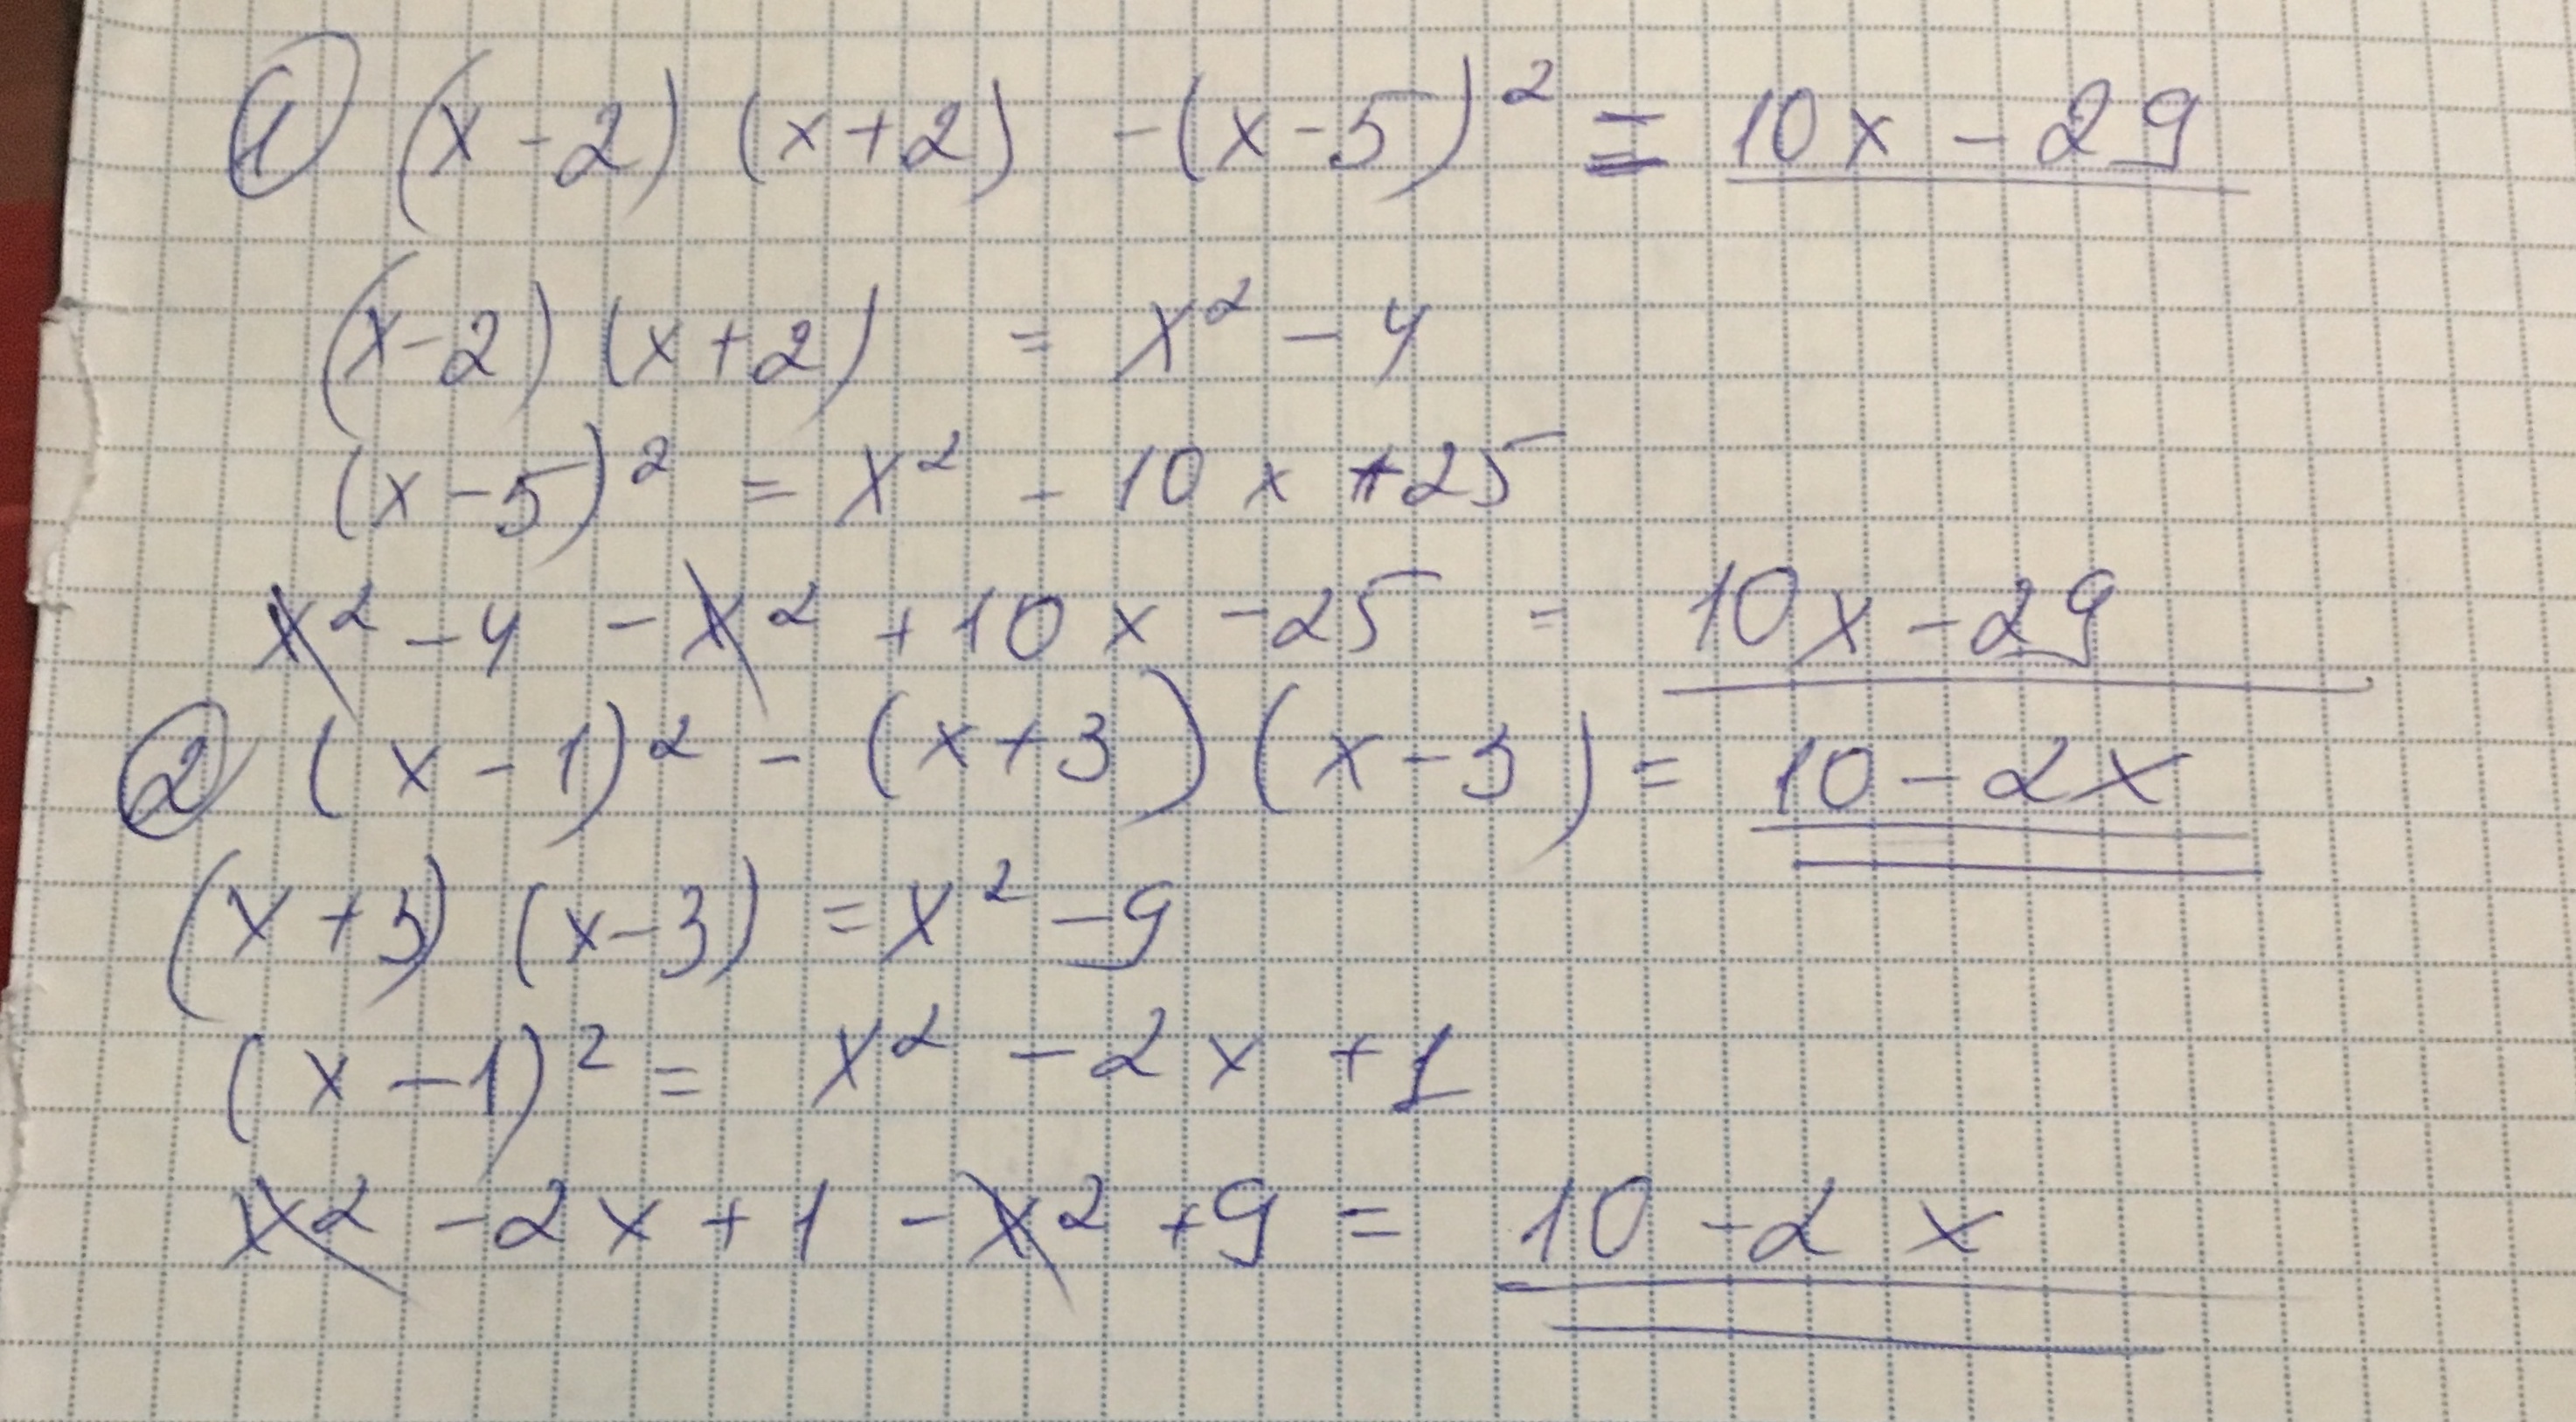 ① (x-2)(x+2) -(x-5)² = 10x - 29
(x-2)(x+2) = x² - 4
(x-5)² = x² - 10x +25
x² - 4 - x² + 10x - 25 = 10x - 29
② (x-1)² - (x+3)(x-3) = 10 - 2x
(x+3)(x-3) = x² - 9
(x-1)² = x² - 2x + 1
x² - 2x + 1 - x² + 9 = 10 - 2x